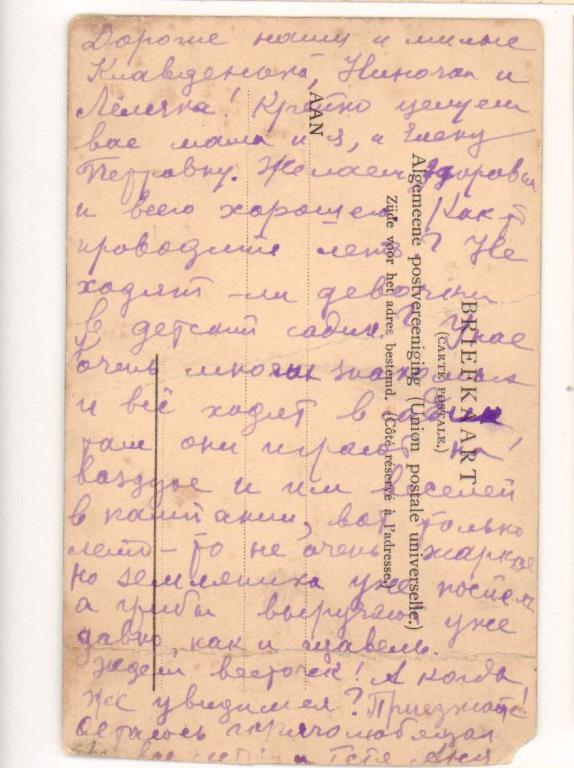 Дорогие наши и милые
Клавденька, Ниночка и
Лёлечка! Крепко целуем
вас мама и я, и Елену
Петровну. Желаем здоровья
и всего хорошего. Как
проводите лето? Не
ходят-ли девочки
в детский садик? У нас
очень много знакомых
и все ходят в садик
там они играют на
воздухе и им веселей
в кампании, вот только
лето-то не очень жаркое
но земляника уже поспела
а грибы выручают уже
давно, как и щавель.
Ждем весточек! А когда
же увидимся? Приезжайте!
Остаюсь горячолюбящая
вас тетя Аня
AAN
Algemeene postvereeniging (Union postale universelle.)
BRIEFKAART
(CARTE POSTALE.)
Zijde voor het adres bestemd. (Côté réservé à l'adresse.)